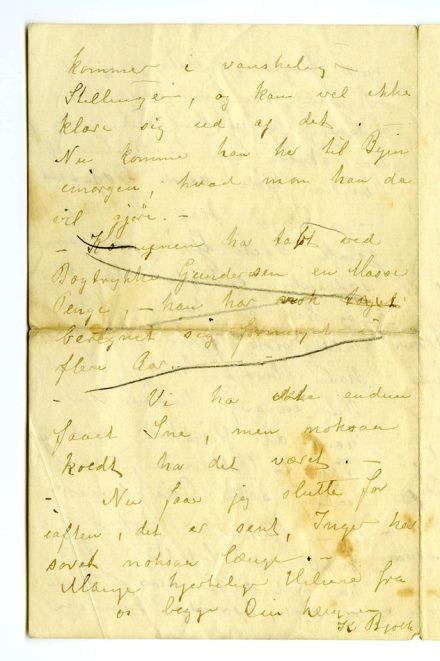 kommer i vanskelige
Stillinger, og kan vel ikke
klare sig ud af det.
Nu komme han her til Byen
imorgen, hvad mon han da
vil gjöre. –
– Kommunen ha tabt ved
Bogtrykker Gundersen en Masse
Penge, – han har nok
beregnet sig formeget i
flere Aar. –
– Vi ha ikke endnu
faaet Sne, men noksaa
koldt ha det været. –
– Nu faar jeg slutte for
iaften, det er sent, Inger har
sovet noksaa længe. –
Mange hjertelige Hilsener fra
os begge Din
K. Bjølk